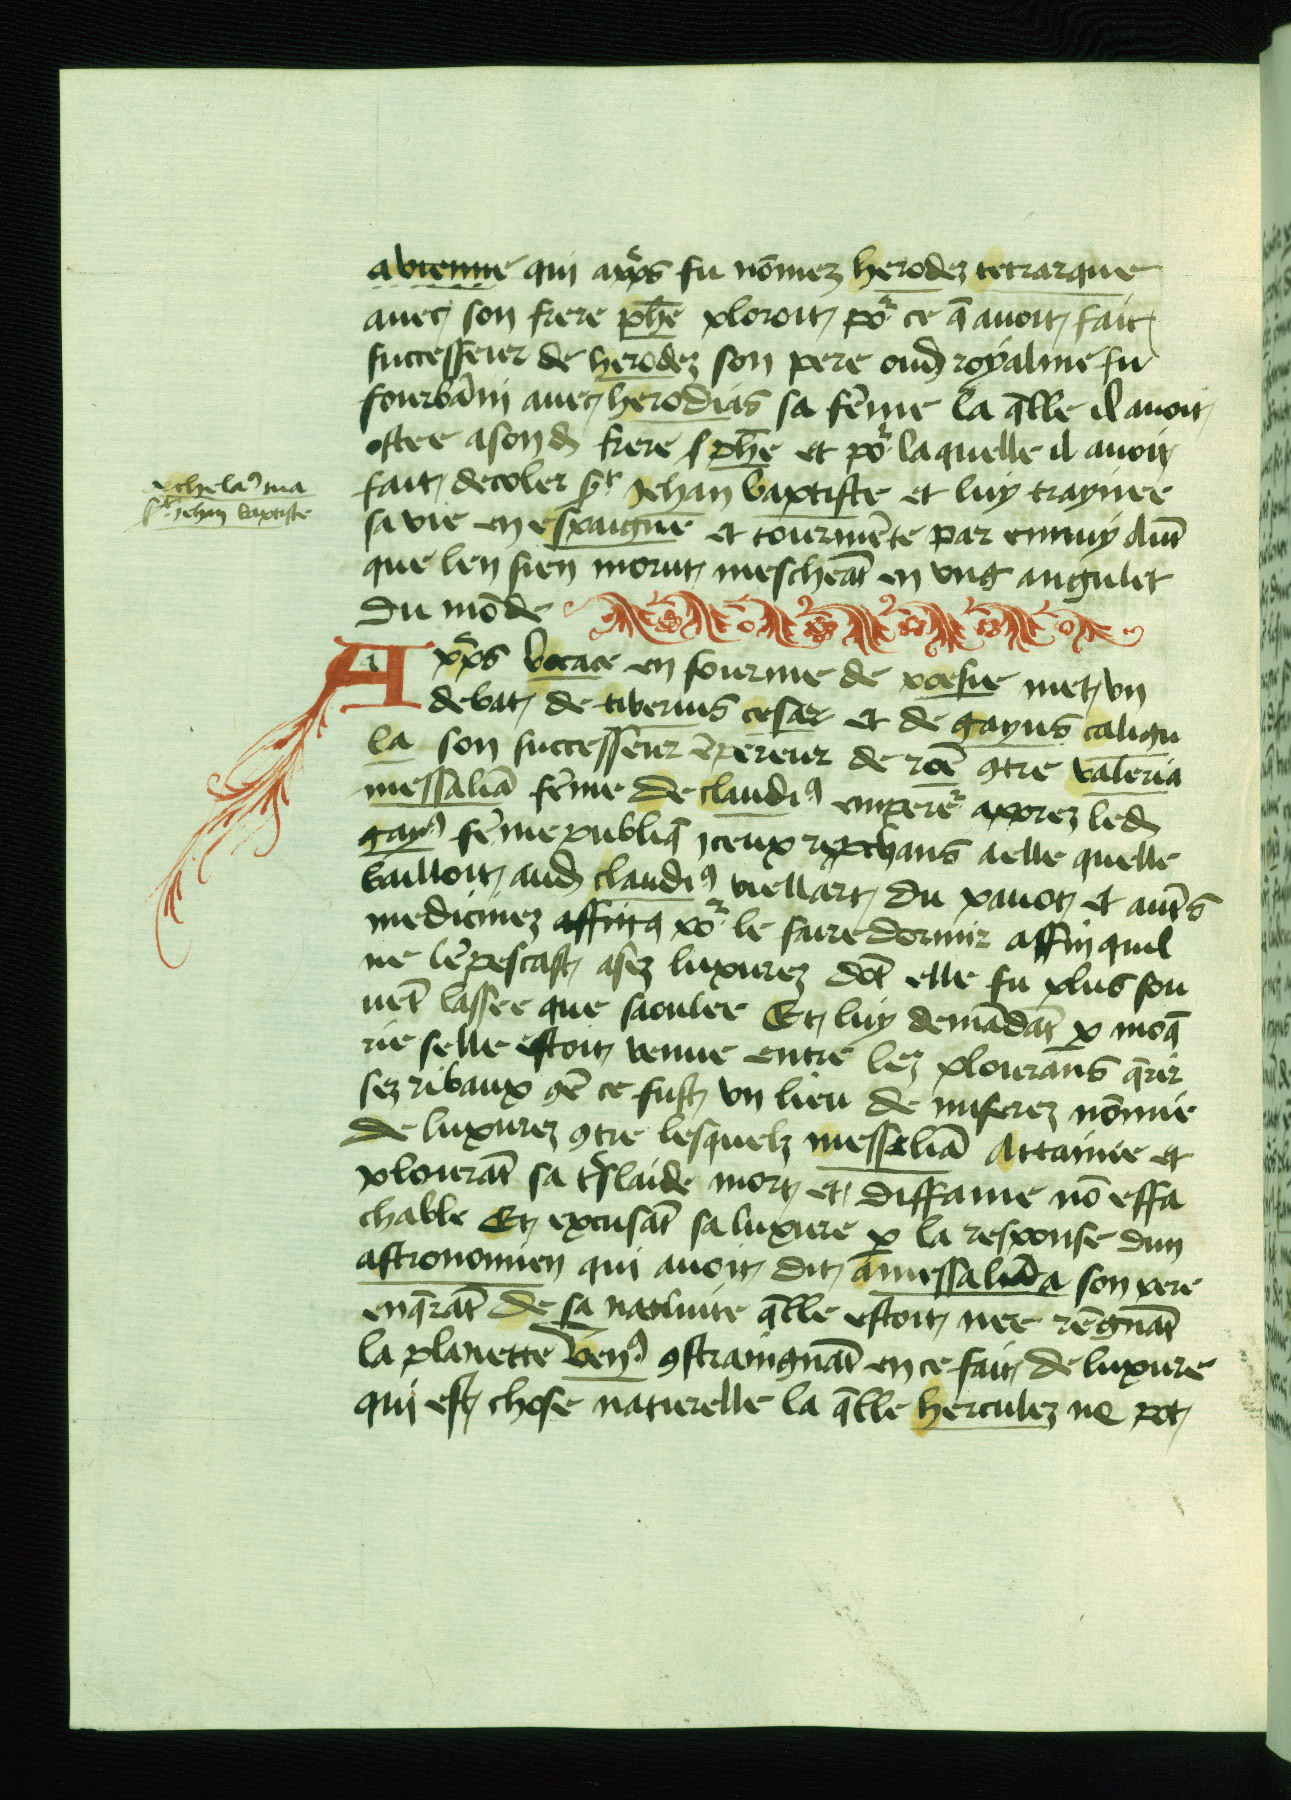 a vienne qui apres fu nōmez herodez tetrarque
avec son frere phē ploroit por ce q̄ avoit fait
successeur de herodez son pere oud royalme fu
fourbāni avec herodias sa fēme la q̄lle il avoit
ostee a son d frere phē et por la quelle il avoit
fait decoler st Jehan baptiste et luy traynee
sa vie en espaigne et tourmēte par ennuy
que len sien morut mescheāt en vng angulet
du mōde
chelaꝰ ma
st Jehan baptiste
Apres bocace en fourme de poesie met vn
debat de tiberius cesar et de gayus caligu
la son successeur ēpereur de rōe ꝯtre valeria
messaliā fēme de claudiꝰ emperer aprez led
gayꝰ fēme publiq̄ iceux rep̄chans a elle quelle
bailloit aud claudiꝰ viellart du pavot et autrs
medicinez por le faire dormir affin quil
ne lēpescast a sez luxurez dōt elle fu plus sou
vēt lassee que saoulee Et luy demādāt p moq̄
rie selle estoit venue entre lez plourans q̄rir
sez ribaux ꝯē ce fust vn lieu de miserez nōmie
de luxurez ꝯtre lesquelz messaliā attainte et
plourāt sa treslaide mort et diffame nō effa
chable Et excusāt sa luxure ꝑ la response dun
astronomien qui avoit dit a messaliā a son pere
enq̄rāt de sa nativite q̄lle estoit nee rēgnāt
la planette venꝰ ꝯstraingnāt en ce fait de luxure
qui est chose naturelle la q̄lle herculez ne pot